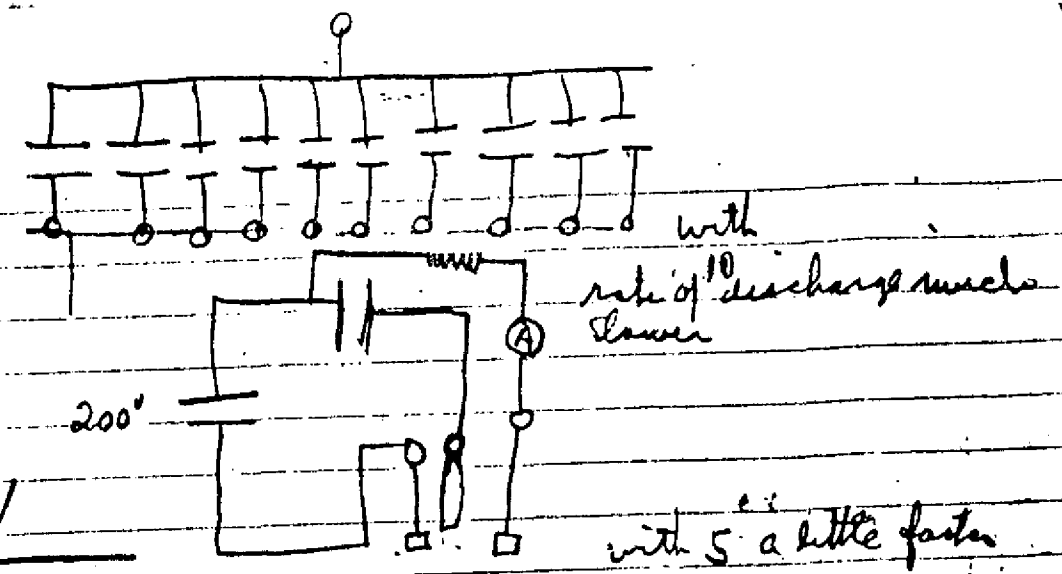 with
rate of 10 discharge much
slower
A
200"
with 5 a little faster